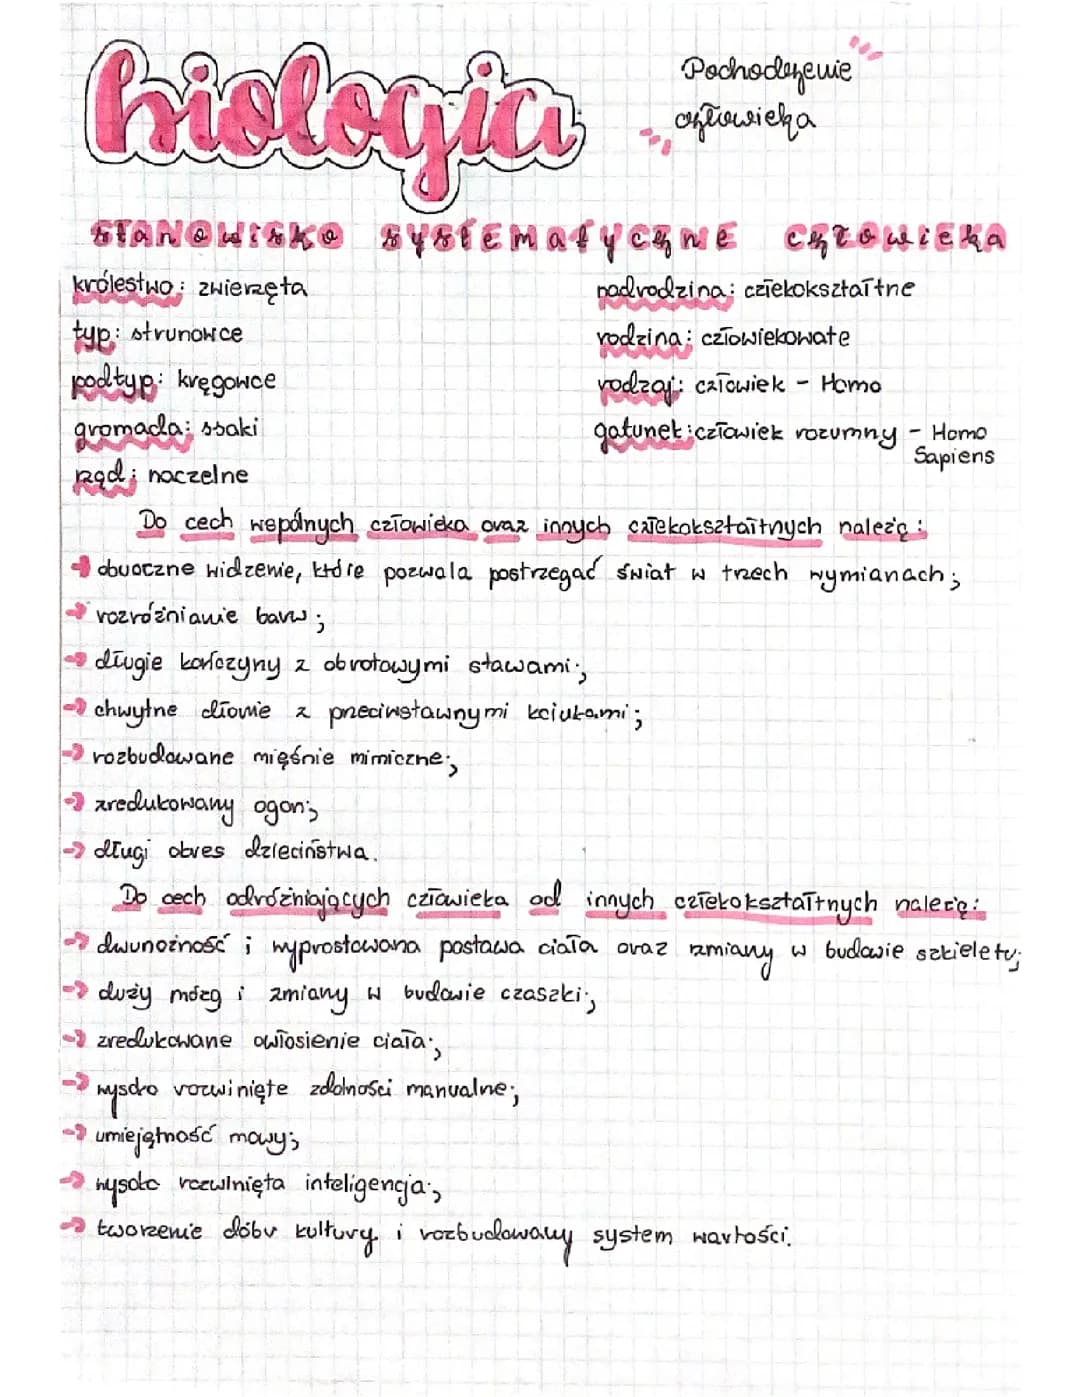 biologia
Pochodzenie
człowieka
STANOWISKO SYSTEMATYCZNE CZŁOWIEKA
królestwo: zwierzęta
typ: strunowce
podtyp: kręgowce
gromada: ssaki
rząd: naczelne
nadrodzina: człekokształtne
rodzina: człowiekowate
rodzaj: człowiek - Homo
gatunek: człowiek rozumny - Homo
Sapiens
Do cech wspólnych człowieka oraz innych człekokształtnych należą:
obuoczne widzenie, które pozwala postrzegać świat w trzech wymianach;
rozróżnianie barw;
długie kończyny z obrotowymi stawami;
chwytne dłonie z przeciwstawnymi kciukami;
rozbudowane mięśnie mimiczne;
zredukowany ogon;
długi okres dzieciństwa.
Do cech odróżniających człowieka od innych człekokształtnych należą:
dwunożność i wyprostowana postawa ciała oraz zmiany w budowie szkieletu;
duży mózg i zmiany w budowie czaszki;
zredukowane owłosienie ciała;
wysoko rozwinięte zdolności manualne;
umiejętność mowy;
wysoko rozwinięta inteligencja;
tworzenie dóbr kultury i rozbudowany system wartości.